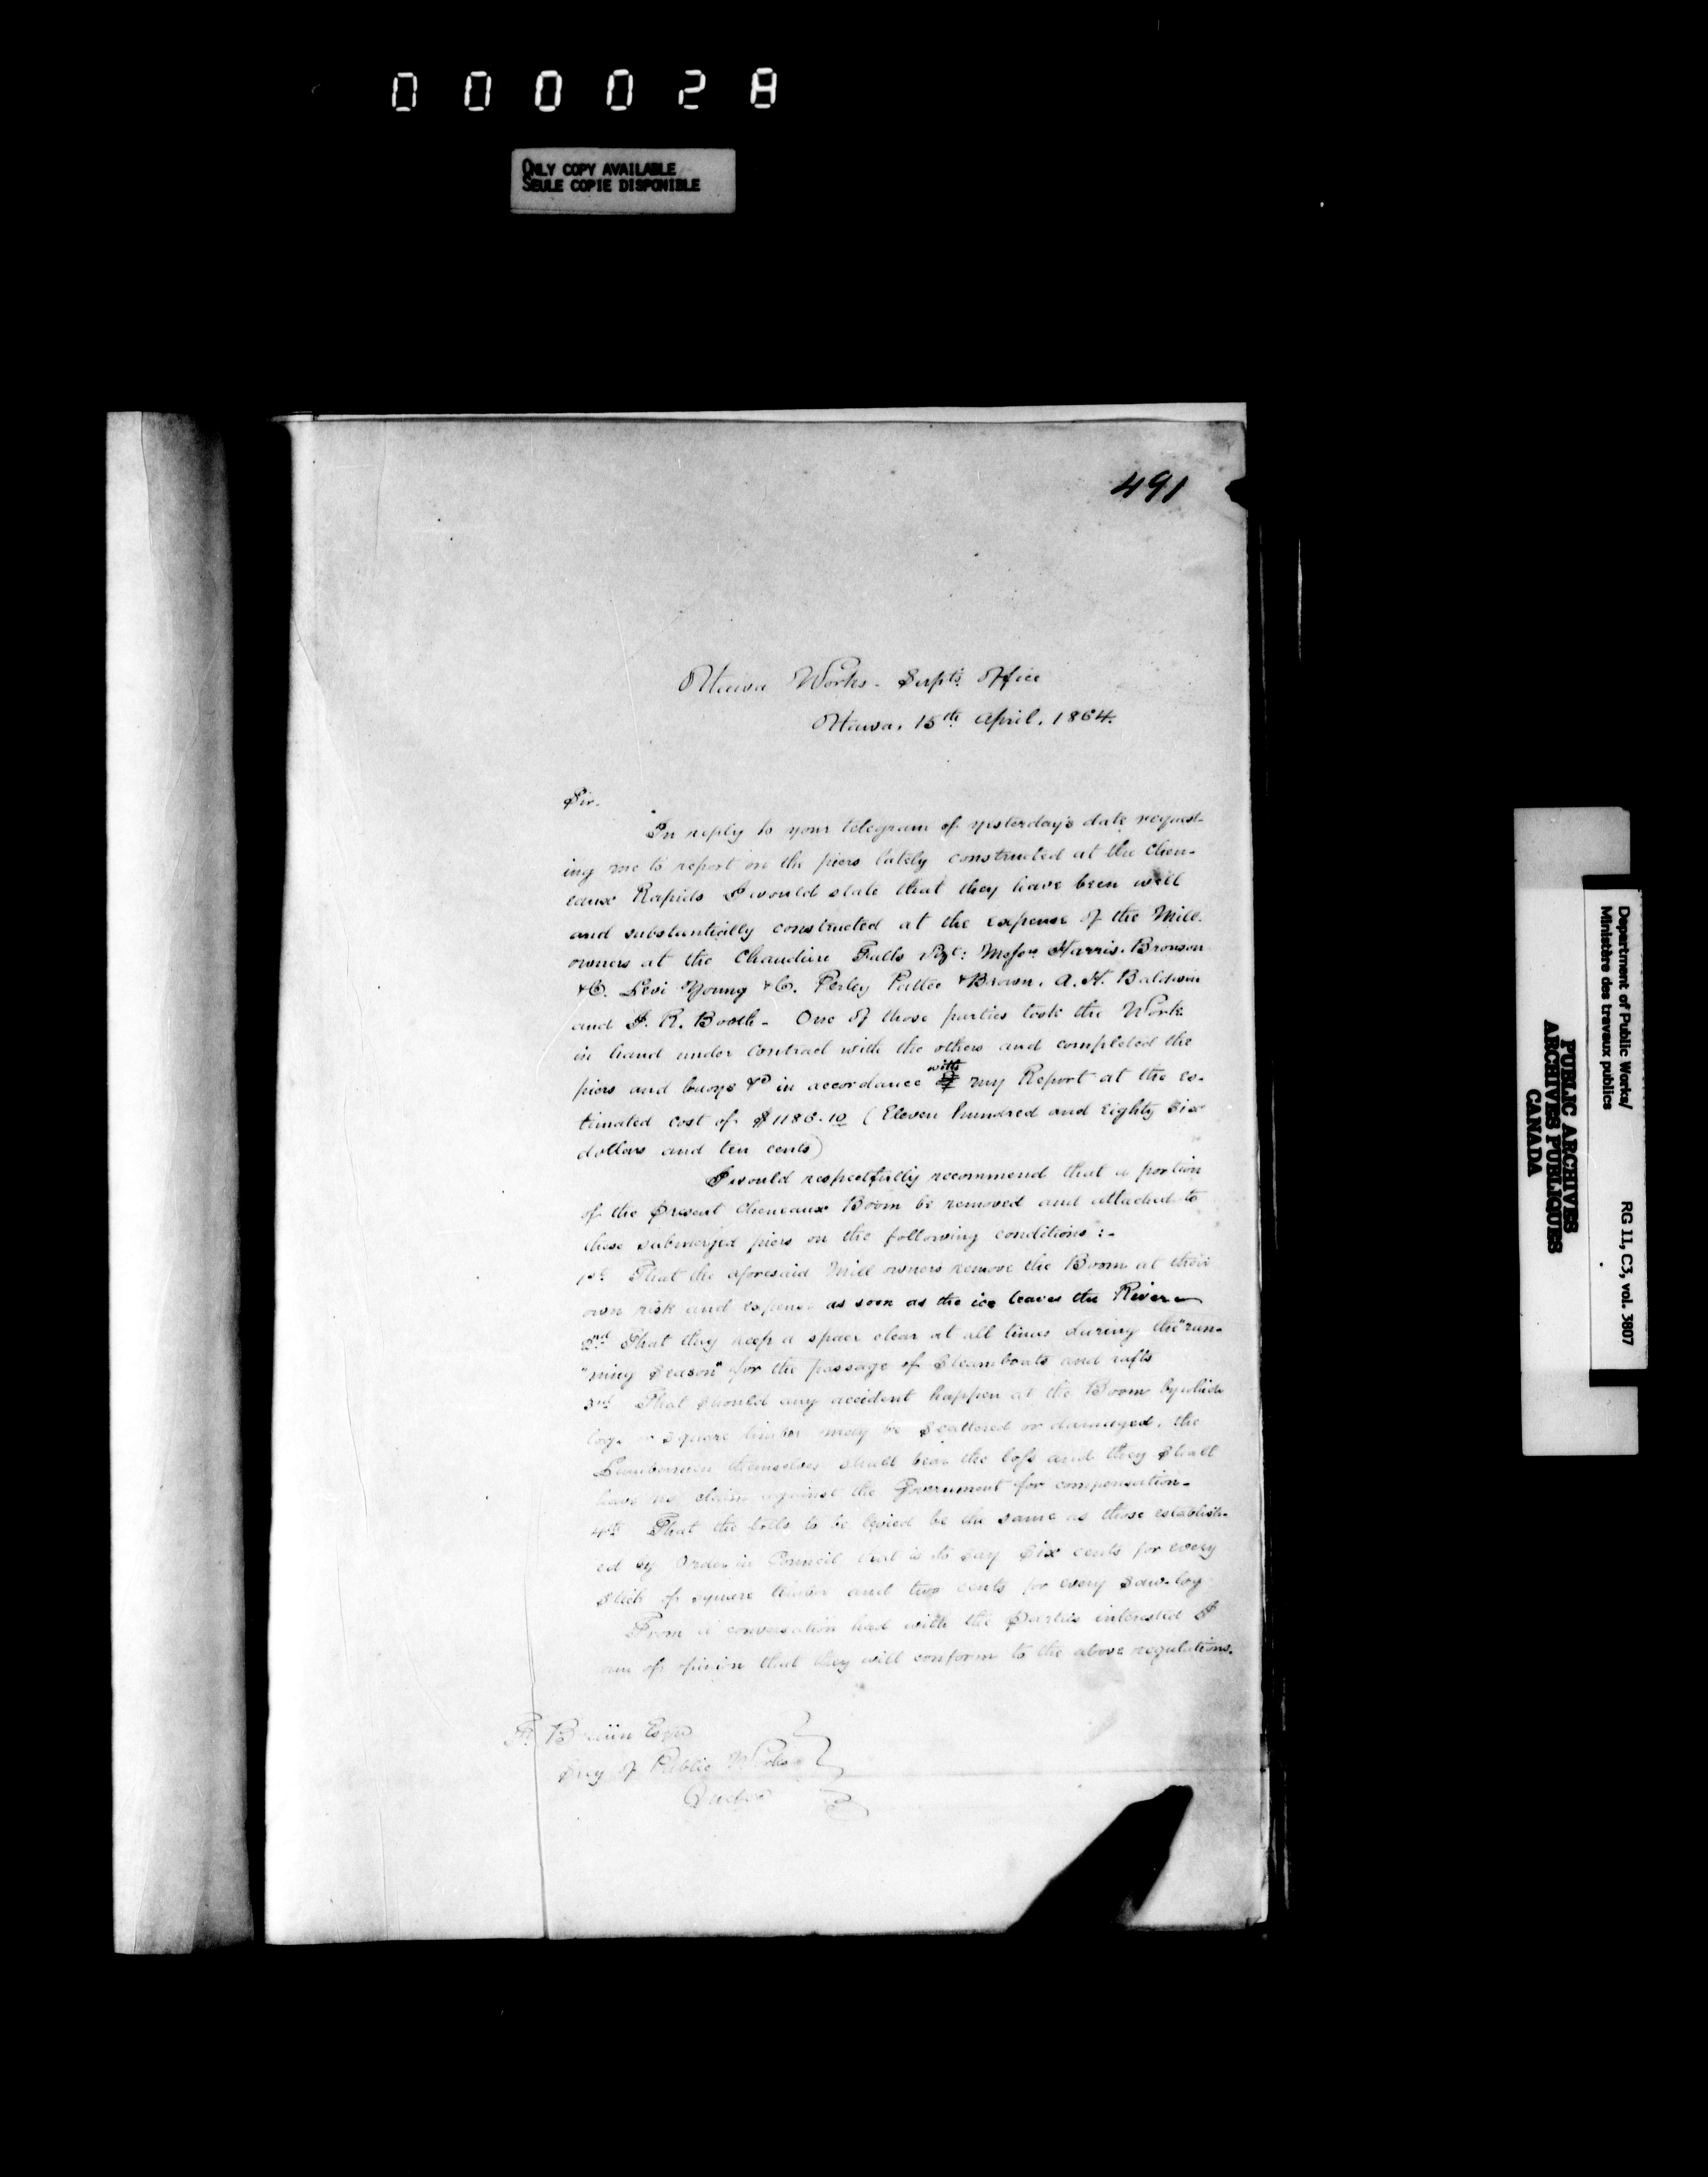 000028
ONLY COPY AVAILABLE
SEULE COPIE DISPONIBLE
491
Ottawa Works. Supts. Office
Ottawa, 15th April, 1864.
Sir.
In reply to your telegram of yesterday's date request-
ing me to report on the piers lately constructed at the Chen-
eaux Rapids I would state that they have been well
and substantially constructed at the expense of the Mill
owners at the Chaudiere Falls Vizt: Messrs Harris. Bronson
& C. Levi Young & C. Perley Pattee & Brown. A. H. Baldwin
and J. R. Booth - One of those parties took the Work
in hand under contract with the others and completed the
piers and buoys &c in accordance with my Report at the es-
timated cost of $1186.10 (Eleven hundred and eighty six
dollars and ten cents)
I would respectfully recommend that a portion
of the present Cheneaux Boom be removed and attached to
these submerged piers on the following conditions :-
1st That the aforesaid Mill owners remove the Boom at their
own risk and expense as soon as the ice leaves the River
2nd That they keep a space clear at all times during the "run-
"ning Season" for the passage of Steamboats and rafts
3rd That should any accident happen at the Boom by which
logs or square timber may be scattered or damaged, the
Lumbermen themselves shall bear the loss and they shall
have no claim against the Government for compensation-
4th That the tolls to be levied be the same as those establish-
ed by Order in Council that is to say Six cents for every
stick of square timber and two cents for every Saw-log
From a conversation had with the parties interested I
am of opinion that they will conform to the above regulations.
F. Braun Esqre
Secy of Public Works
Quebec
Department of Public Works/
Ministère des travaux publics
RG 11, C3, vol. 3807
PUBLIC ARCHIVES
ARCHIVES PUBLIQUES
CANADA